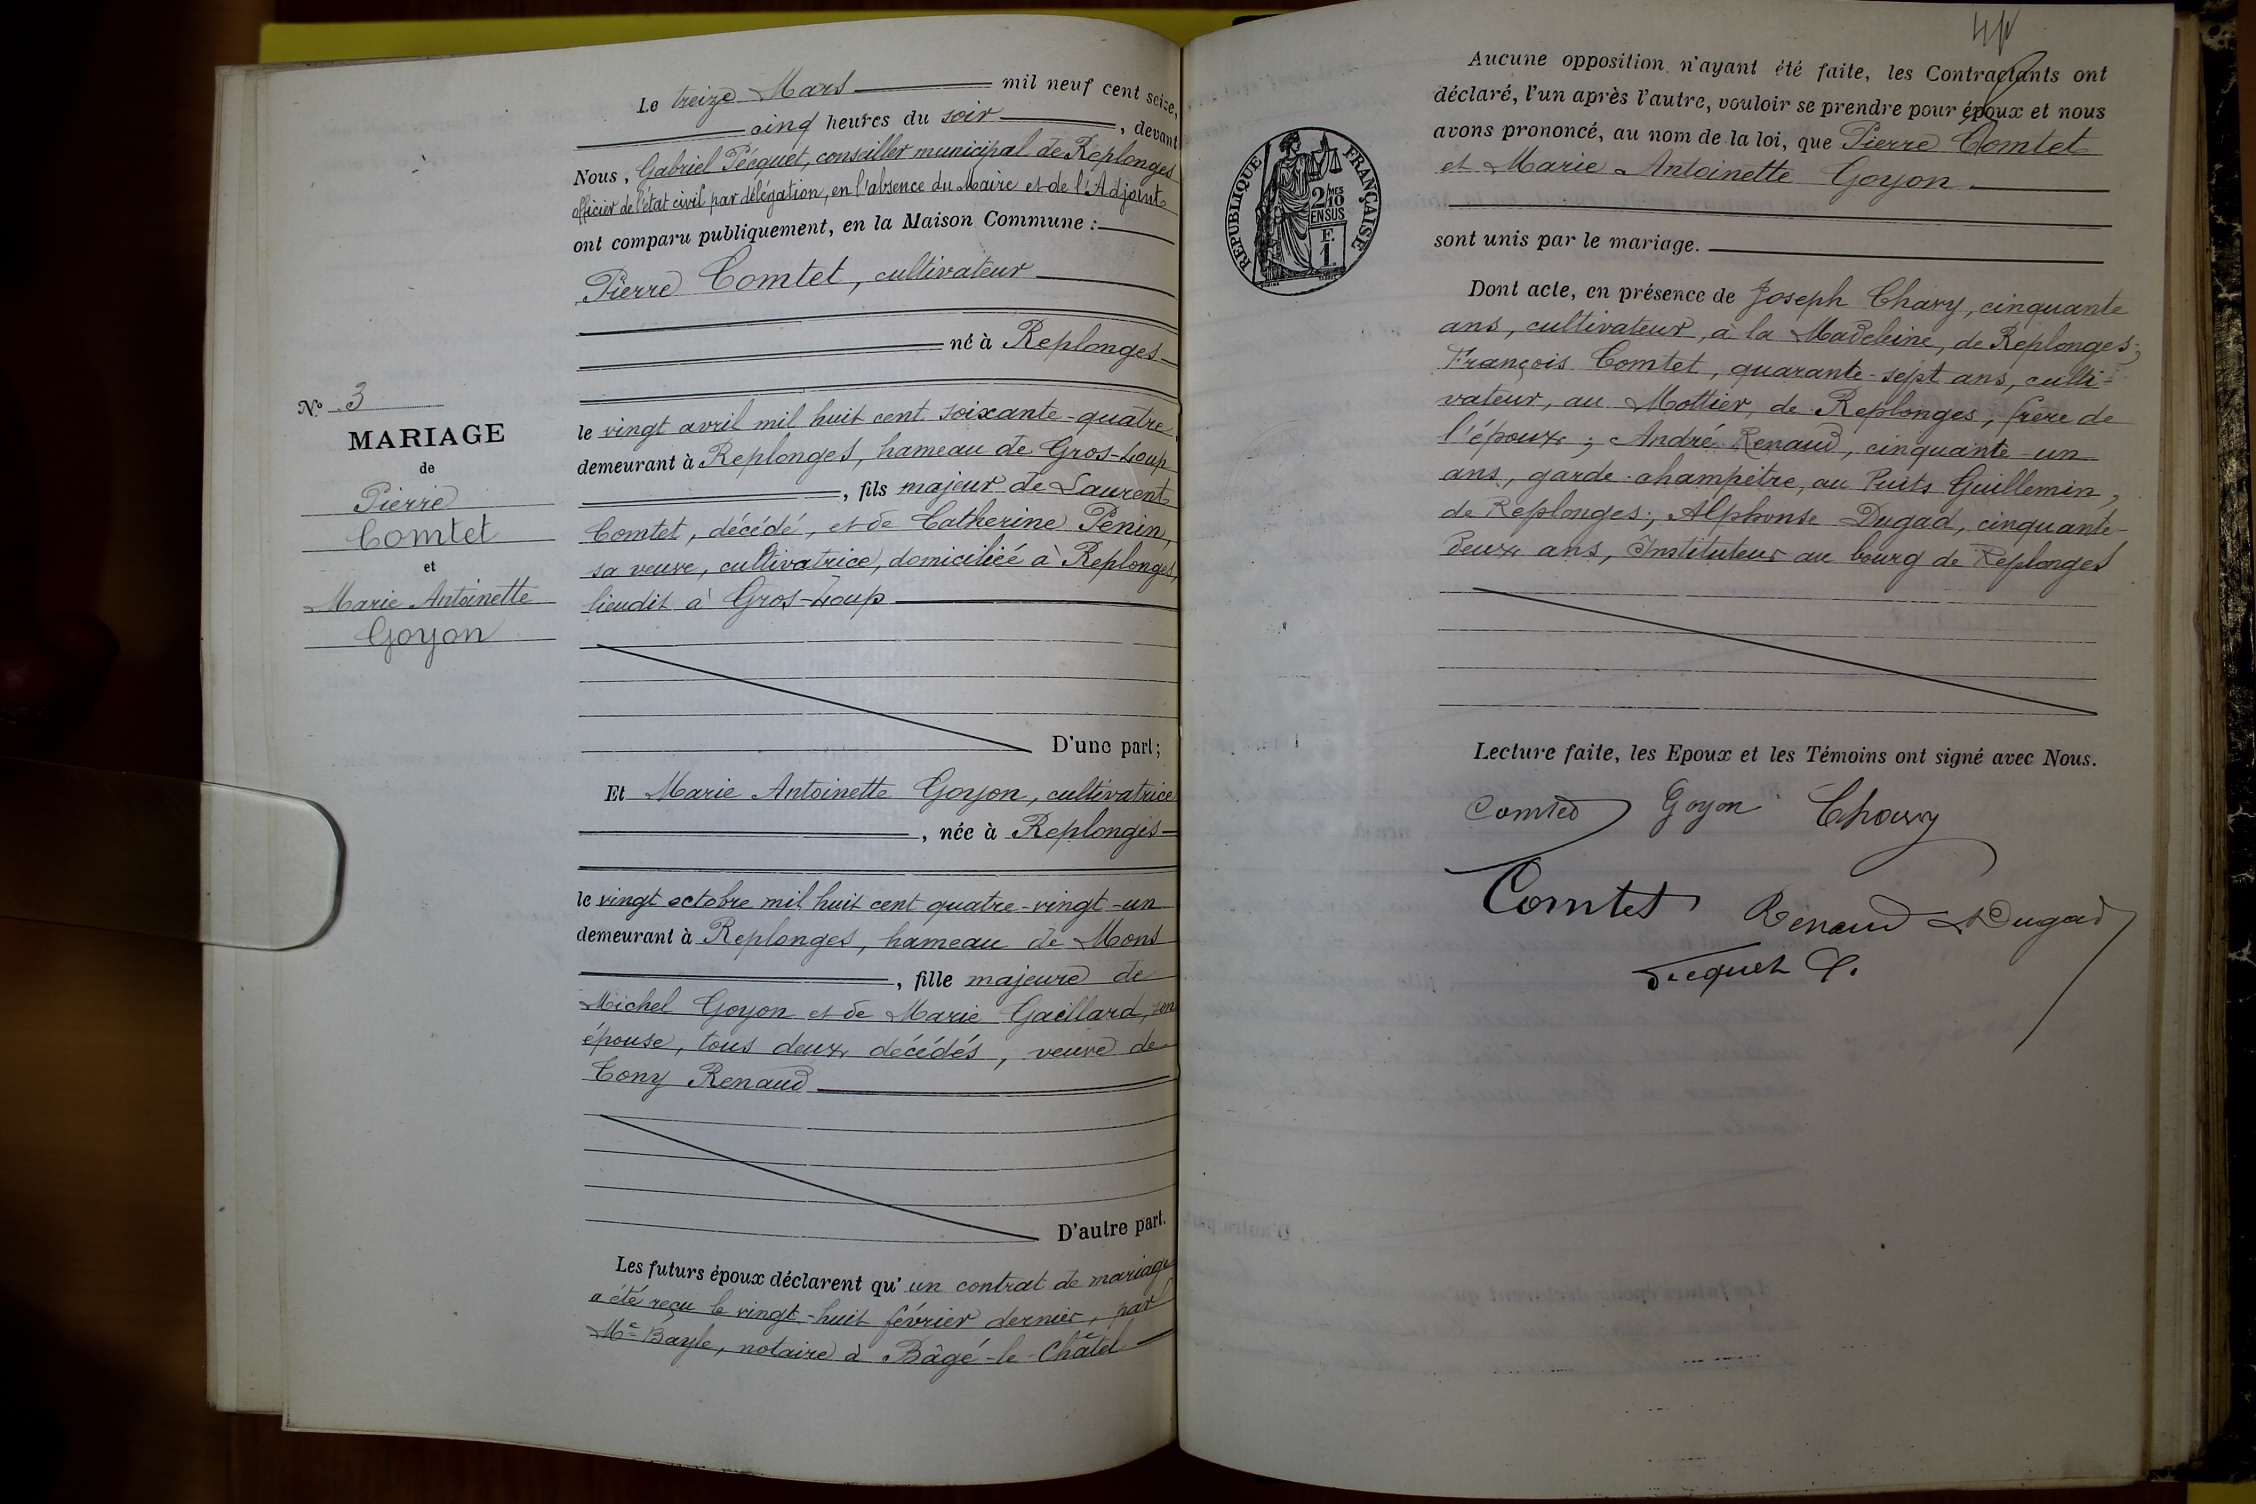 Le treize Mars mil neuf cent seize,
cinq heures du soir, devant
Nous, Gabriel Pécquet, conseiller municipal de Replonges
officier de l'état civil par délégation, en l'absence du Maire et de l'Adjoint
ont comparu publiquement, en la Maison Commune :
Pierre Comtet, cultivateur
né à Replonges
le vingt avril mil huit cent soixante-quatre
demeurant à Replonges, hameau de Gros-Loup
, fils majeur de Laurent
Comtet, décédé, et de Catherine Penin,
sa veuve, cultivatrice, domiciliée à Replonges,
lieudit à Gros-Loup
D'une part;
Et Marie Antoinette Goyon, cultivatrice
, née à Replonges
le vingt octobre mil huit cent quatre-vingt-un
demeurant à Replonges, hameau de Mons
, fille majeure de
Michel Goyon et de Marie Gaillard, son
épouse, tous deux décédés, veuve de
Tony Renaud
D'autre part.
Les futurs époux déclarent qu'un contrat de mariage
a été reçu le vingt-huit février dernier, par
Me Bayle, notaire à Bâgé-le-Châtel
N° 3
MARIAGE
de
Pierre
Comtet
et
Marie Antoinette
Goyon
Aucune opposition n'ayant été faite, les Contractants ont
déclaré, l'un après l'autre, vouloir se prendre pour époux et nous
avons prononcé, au nom de la loi, que Pierre Comtet
et Marie Antoinette Goyon
sont unis par le mariage.
RÉPUBLIQUE FRANÇAISE
2MES
/10
EN SUS
F.
1.
Dont acte, en présence de Joseph Chavy, cinquante
ans, cultivateur, à la Madeleine, de Replonges;
François Comtet, quarante-sept ans, culti-
vateur, au Mottier, de Replonges, frère de
l'époux; André Renaud, cinquante-un
ans, garde-champêtre, au Puits Guillemin,
de Replonges; Alphonse Dugad, cinquante-
deux ans, Instituteur au bourg de Replonges
Lecture faite, les Epoux et les Témoins ont signé avec Nous.
Comtet Goyon Chavy
Comtet Renaud A Dugad
Pecquet G.